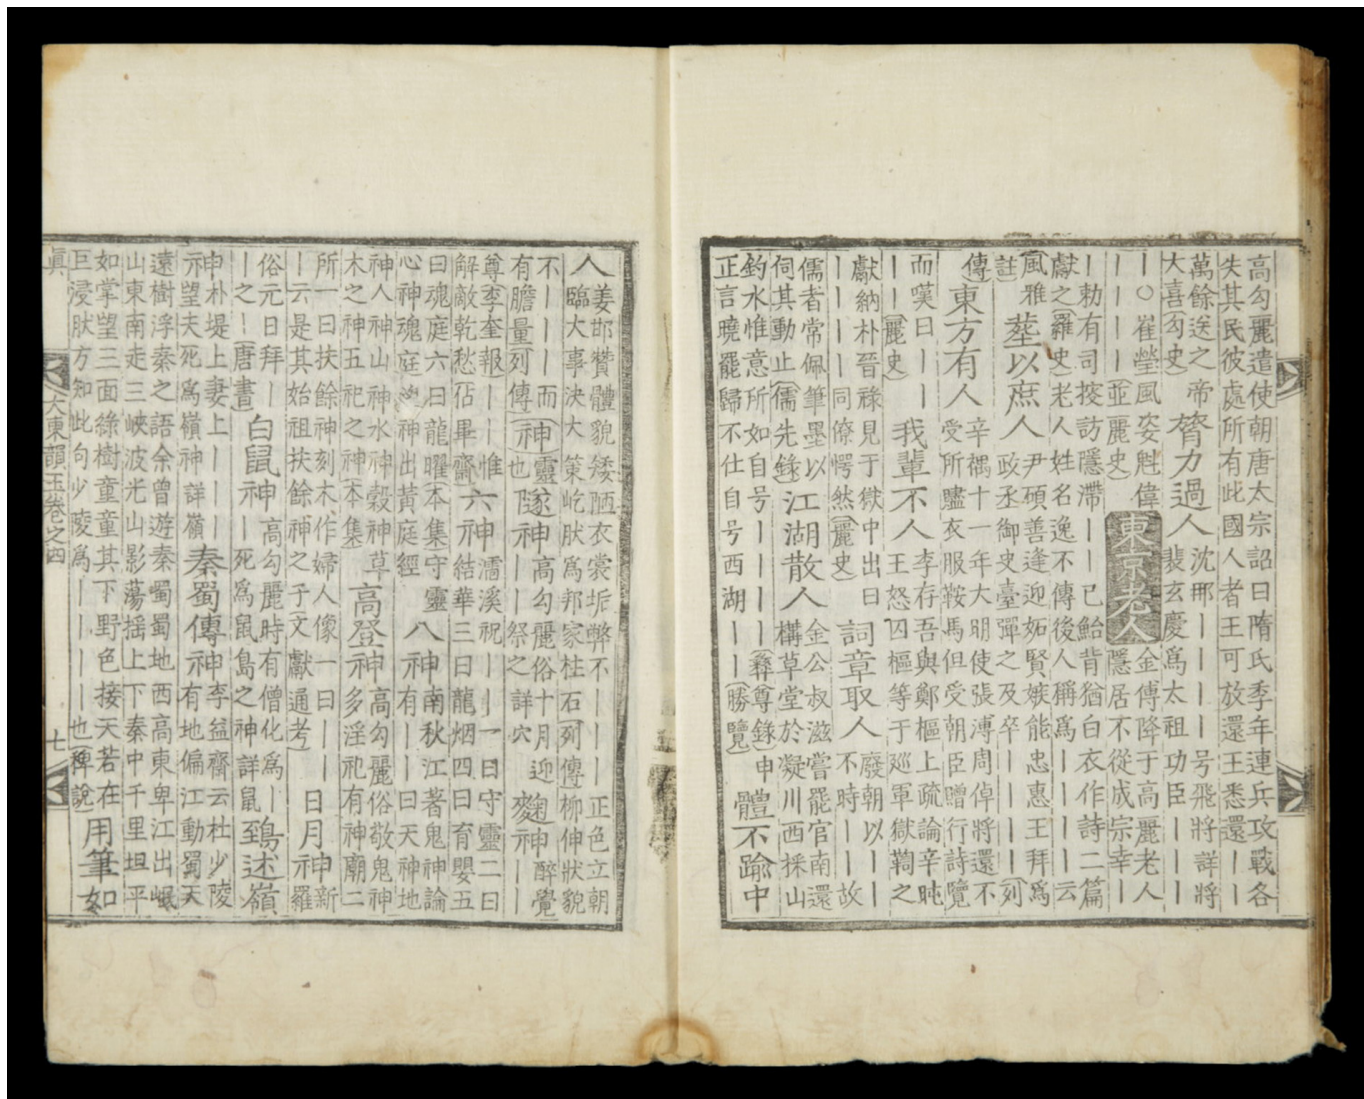 高勾麗遣使朝唐太宗詔曰隋氏季年連兵攻戰各
失其民彼處所有此國人者王可放還王悉還丨丨
萬餘送之帝
大喜(勾史)
膂力過人
沈那丨丨丨丨号飛將詳將
裴玄慶爲太祖功臣丨丨
丨○崔瑩風姿魁偉
丨丨丨(並麗史)
東京老人
金傅降于高麗老人
隱居不從成宗幸丨
丨勅有司按訪隱滯丨丨已鮐背猶白衣作詩二篇
獻之(羅史)老人姓名逸不傳後人稱爲丨丨丨丨云
風雅
註)
塟以庶人
尹碩善逢迎妬賢嫉能忠惠王拜爲
政丞御史臺彈之及卒丨丨丨丨(列
傳)
東方有人
辛禑十一年大明使張溥周倬將還不
受所贐衣服鞍馬但受朝臣贈行詩覽
而嘆曰丨丨
丨丨(麗史)
我輩不人
李存吾與鄭樞上疏論辛旽
王怒囚樞等于巡軍獄鞫之
獻納朴晉祿見于獄中出曰
丨丨丨丨同僚愕然(麗史)
詞章取人
廢朝以丨丨
丨丨不時丨丨故
儒者常佩筆墨以
伺其動止(儒先錄)
江湖散人
金公叔滋嘗罷官南還
構草堂於凝川西採山
釣水惟意所如自号丨丨丨丨(彝尊錄)申
正言曉罷歸不仕自号西湖丨丨(勝覽)
體不踰中
人
姜邯贊體貌矮陋衣裳垢弊不丨丨丨正色立朝
臨大事決大策屹肰爲邦家柱石(列傳)柳伸狀貌
不丨丨丨而
有膽量(列傳)
神靈
也
隧神
高勾麗俗十月迎
丨丨祭之詳穴
麴神
醉覺
丨丨
尊(李奎報)丨丨惟
解敵乾愁(佔畢齋)
六神
濡溪祝丨丨丨一曰守靈二曰
結華三曰龍烟四曰育嬰五
曰魂庭六曰龍曜(本集)守靈
心神魂庭凶神出黃庭經
八神
南秋江著鬼神論
有丨丨曰天神地
神人神山神水神穀神草
木之神五祀之神(本集)
高登神
高勾麗俗敬鬼神
多淫祀有神廟二
所一曰扶餘神刻木作婦人像一曰丨丨
丨云是其始祖扶餘神之子文獻通考)
日月神
新
羅
俗元日拜丨
丨之丨(唐書)
白鼠神
高勾麗時有僧化爲丨
丨丨死爲鼠島之神詳鼠
鵄述嶺
神
朴堤上妻上丨丨丨丨
望夫死爲嶺神詳嶺
秦蜀傳神
李益齋云杜少陵
有地偏江動蜀天
遠樹浮秦之語余曾遊秦蜀蜀地西高東卑江出岷
山東南走三峽波光山影蕩揺上下秦中千里坦平
如掌望三面綠樹童童其下野色接天若在
巨浸肰方知此句少陵爲丨丨丨丨也(稗說)
用筆如
眞
大東韻玉卷之四
七